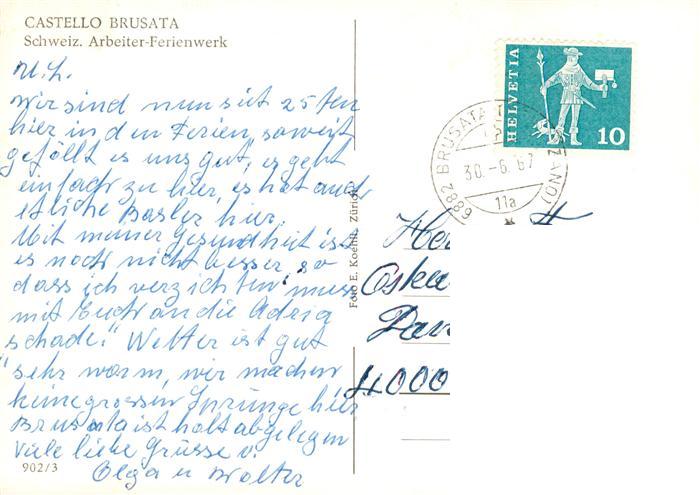 CASTELLO BRUSATA
Schweiz. Arbeiter-Ferienwerk
M. L.
Wir sind nun seit 25ten
hier in den Ferien, soweit
gefällt es uns gut, es geht
einfach zu hier, es hat auch
etliche Basler hier.
Mit meiner Gesundheit ist
es noch nicht besser, so
dass ich verzichten muss
mit Euch an die Adria
schade! Wetter ist gut
sehr warm, wir machen
keine grossen Sprünge hier
Brusata ist halt abgelegen
Viele liebe Grüsse v.
Olga u Walter
902/3
Foto E. Koehli, Zürich
HELVETIA
10
6882 BRUSATA
30.-6.67
11a
4000